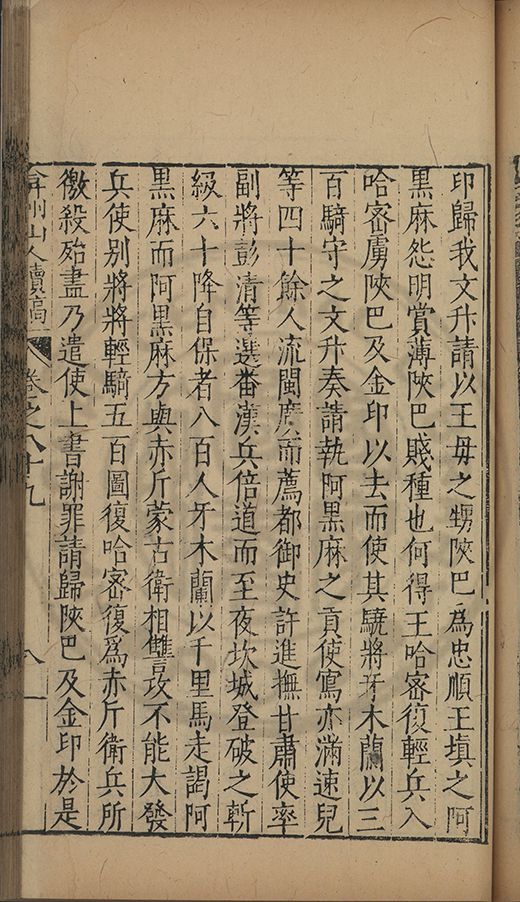 印歸我文升請以王毋之甥陜巴爲忠順王填之阿
黑麻怨明賞薄陜巴賤種也何得王哈密復輕兵入
哈密虜陜巴及金印以去而使其驍將牙木蘭以三
百騎守之文升奏請執阿黑麻之貢使寫亦滿速兒
等四十餘人流閩廣而薦都御史許進撫甘肅使率
副將彭清等選番漢兵倍道而至夜坎城登破之斬
級六十降自保者八百人牙木蘭以千里馬走謁阿
黑麻而阿黑麻方與赤斤蒙古衛相讐攻不能大發
兵使别將將輕騎五百圖復哈密復爲赤斤衛兵所
徼殺殆盡乃遣使上書謝罪請歸陜巴及金印於是
弇州山人續稿 卷之八十九 八